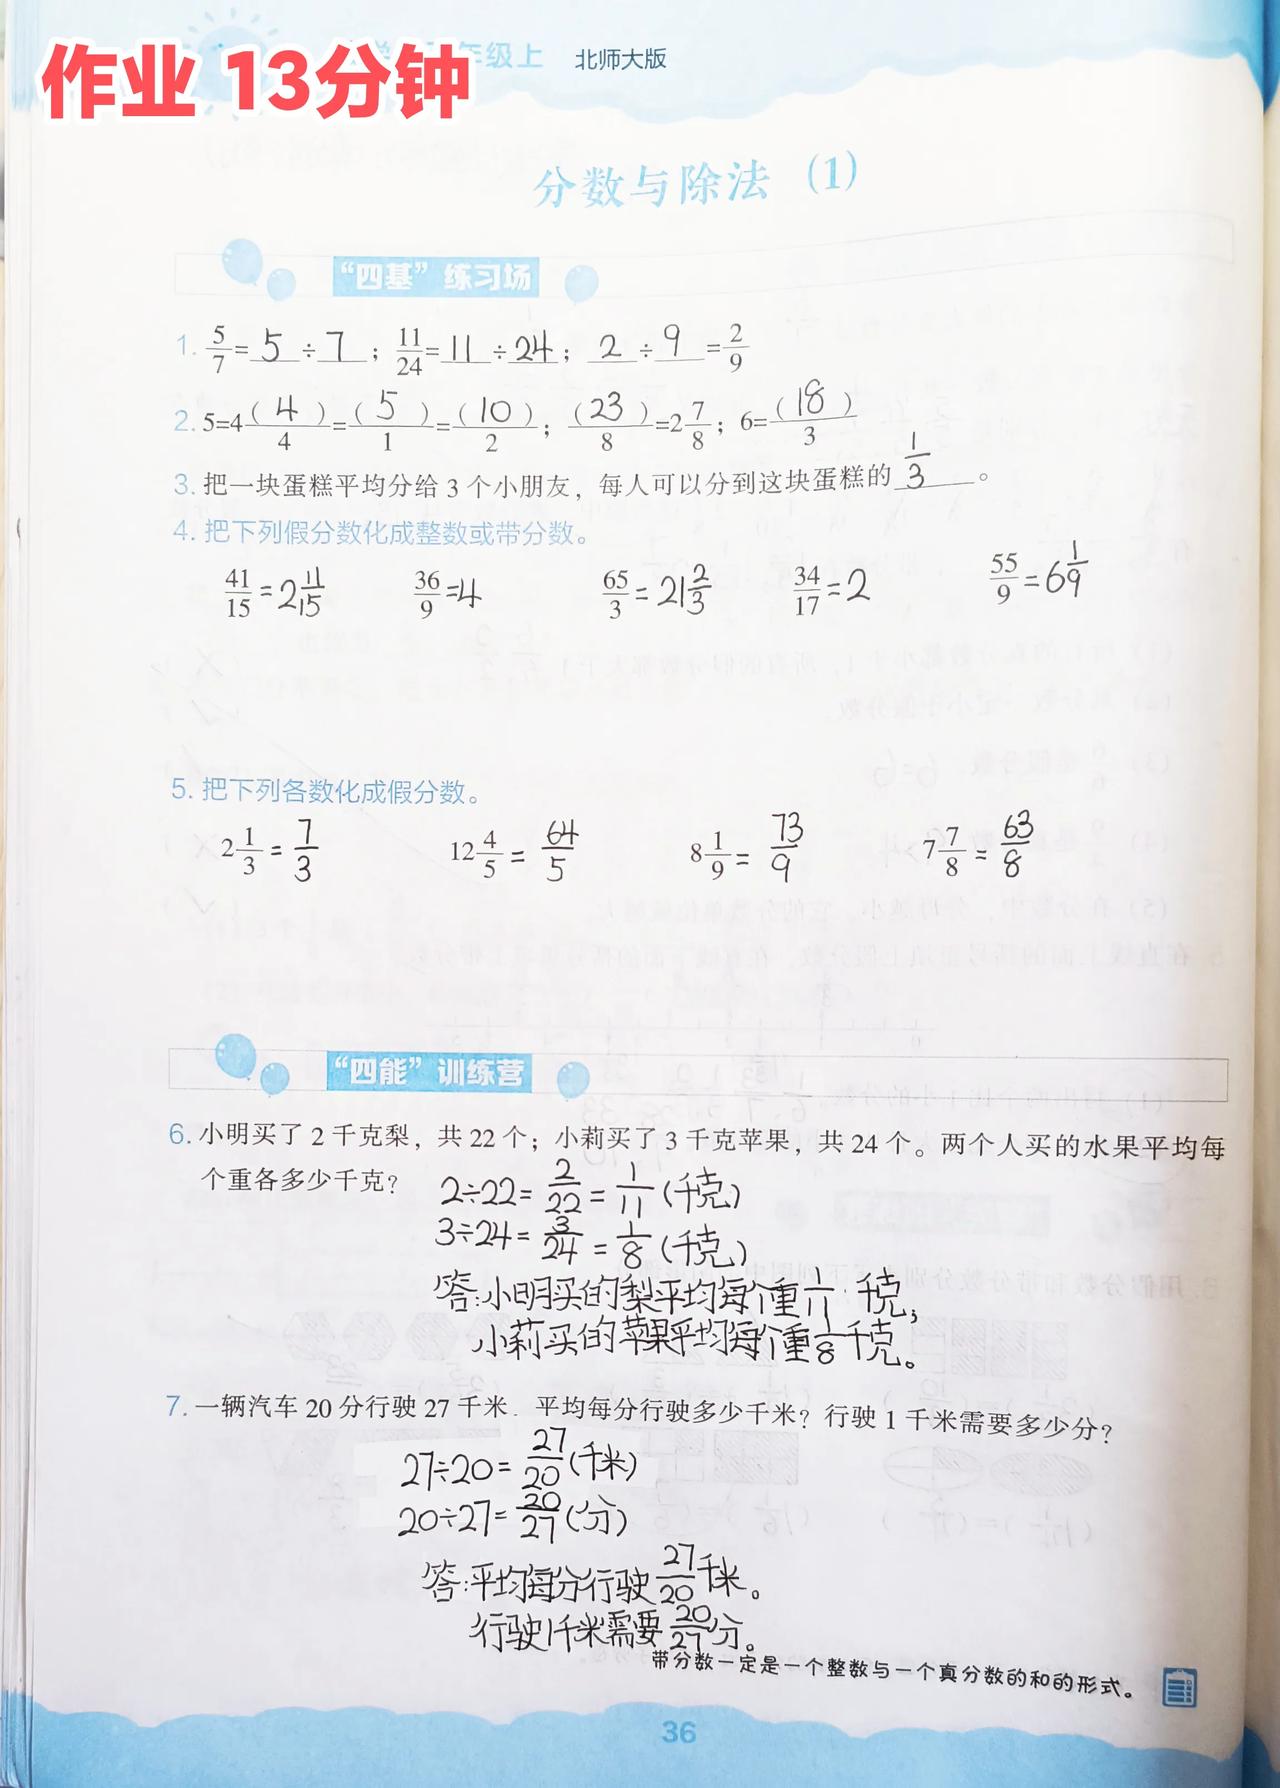 作业 13分钟
年级上 北师大版
分数与除法 (1)
“四基”练习场
1. 5/7=5÷7; 11/24=11÷24; 2÷9=2/9
2. 5=4(4)/4=(5)/1=(10)/2; (23)/8=2 7/8; 6=(18)/3
3. 把一块蛋糕平均分给 3 个小朋友，每人可以分到这块蛋糕的 1/3 。
4. 把下列假分数化成整数或带分数。
41/15=2 11/15 36/9=4 65/3=21 2/3 34/17=2 55/9=6 1/9
5. 把下列各数化成假分数。
2 1/3=7/3 12 4/5=64/5 8 1/9=73/9 7 7/8=63/8
“四能”训练营
6. 小明买了 2 千克梨，共 22 个；小莉买了 3 千克苹果，共 24 个。两个人买的水果平均每
个重各多少千克？
2÷22=2/22=1/11(千克)
3÷24=3/24=1/8(千克)
答:小明买的梨平均每个重1/11千克,
小莉买的苹果平均每个重1/8千克。
7. 一辆汽车 20 分行驶 27 千米．平均每分行驶多少千米？行驶 1 千米需要多少分？
27÷20=27/20(千米)
20÷27=20/27(分)
答:平均每分行驶27/20千米。
行驶1千米需要20/27分。
带分数一定是一个整数与一个真分数的和的形式。
36